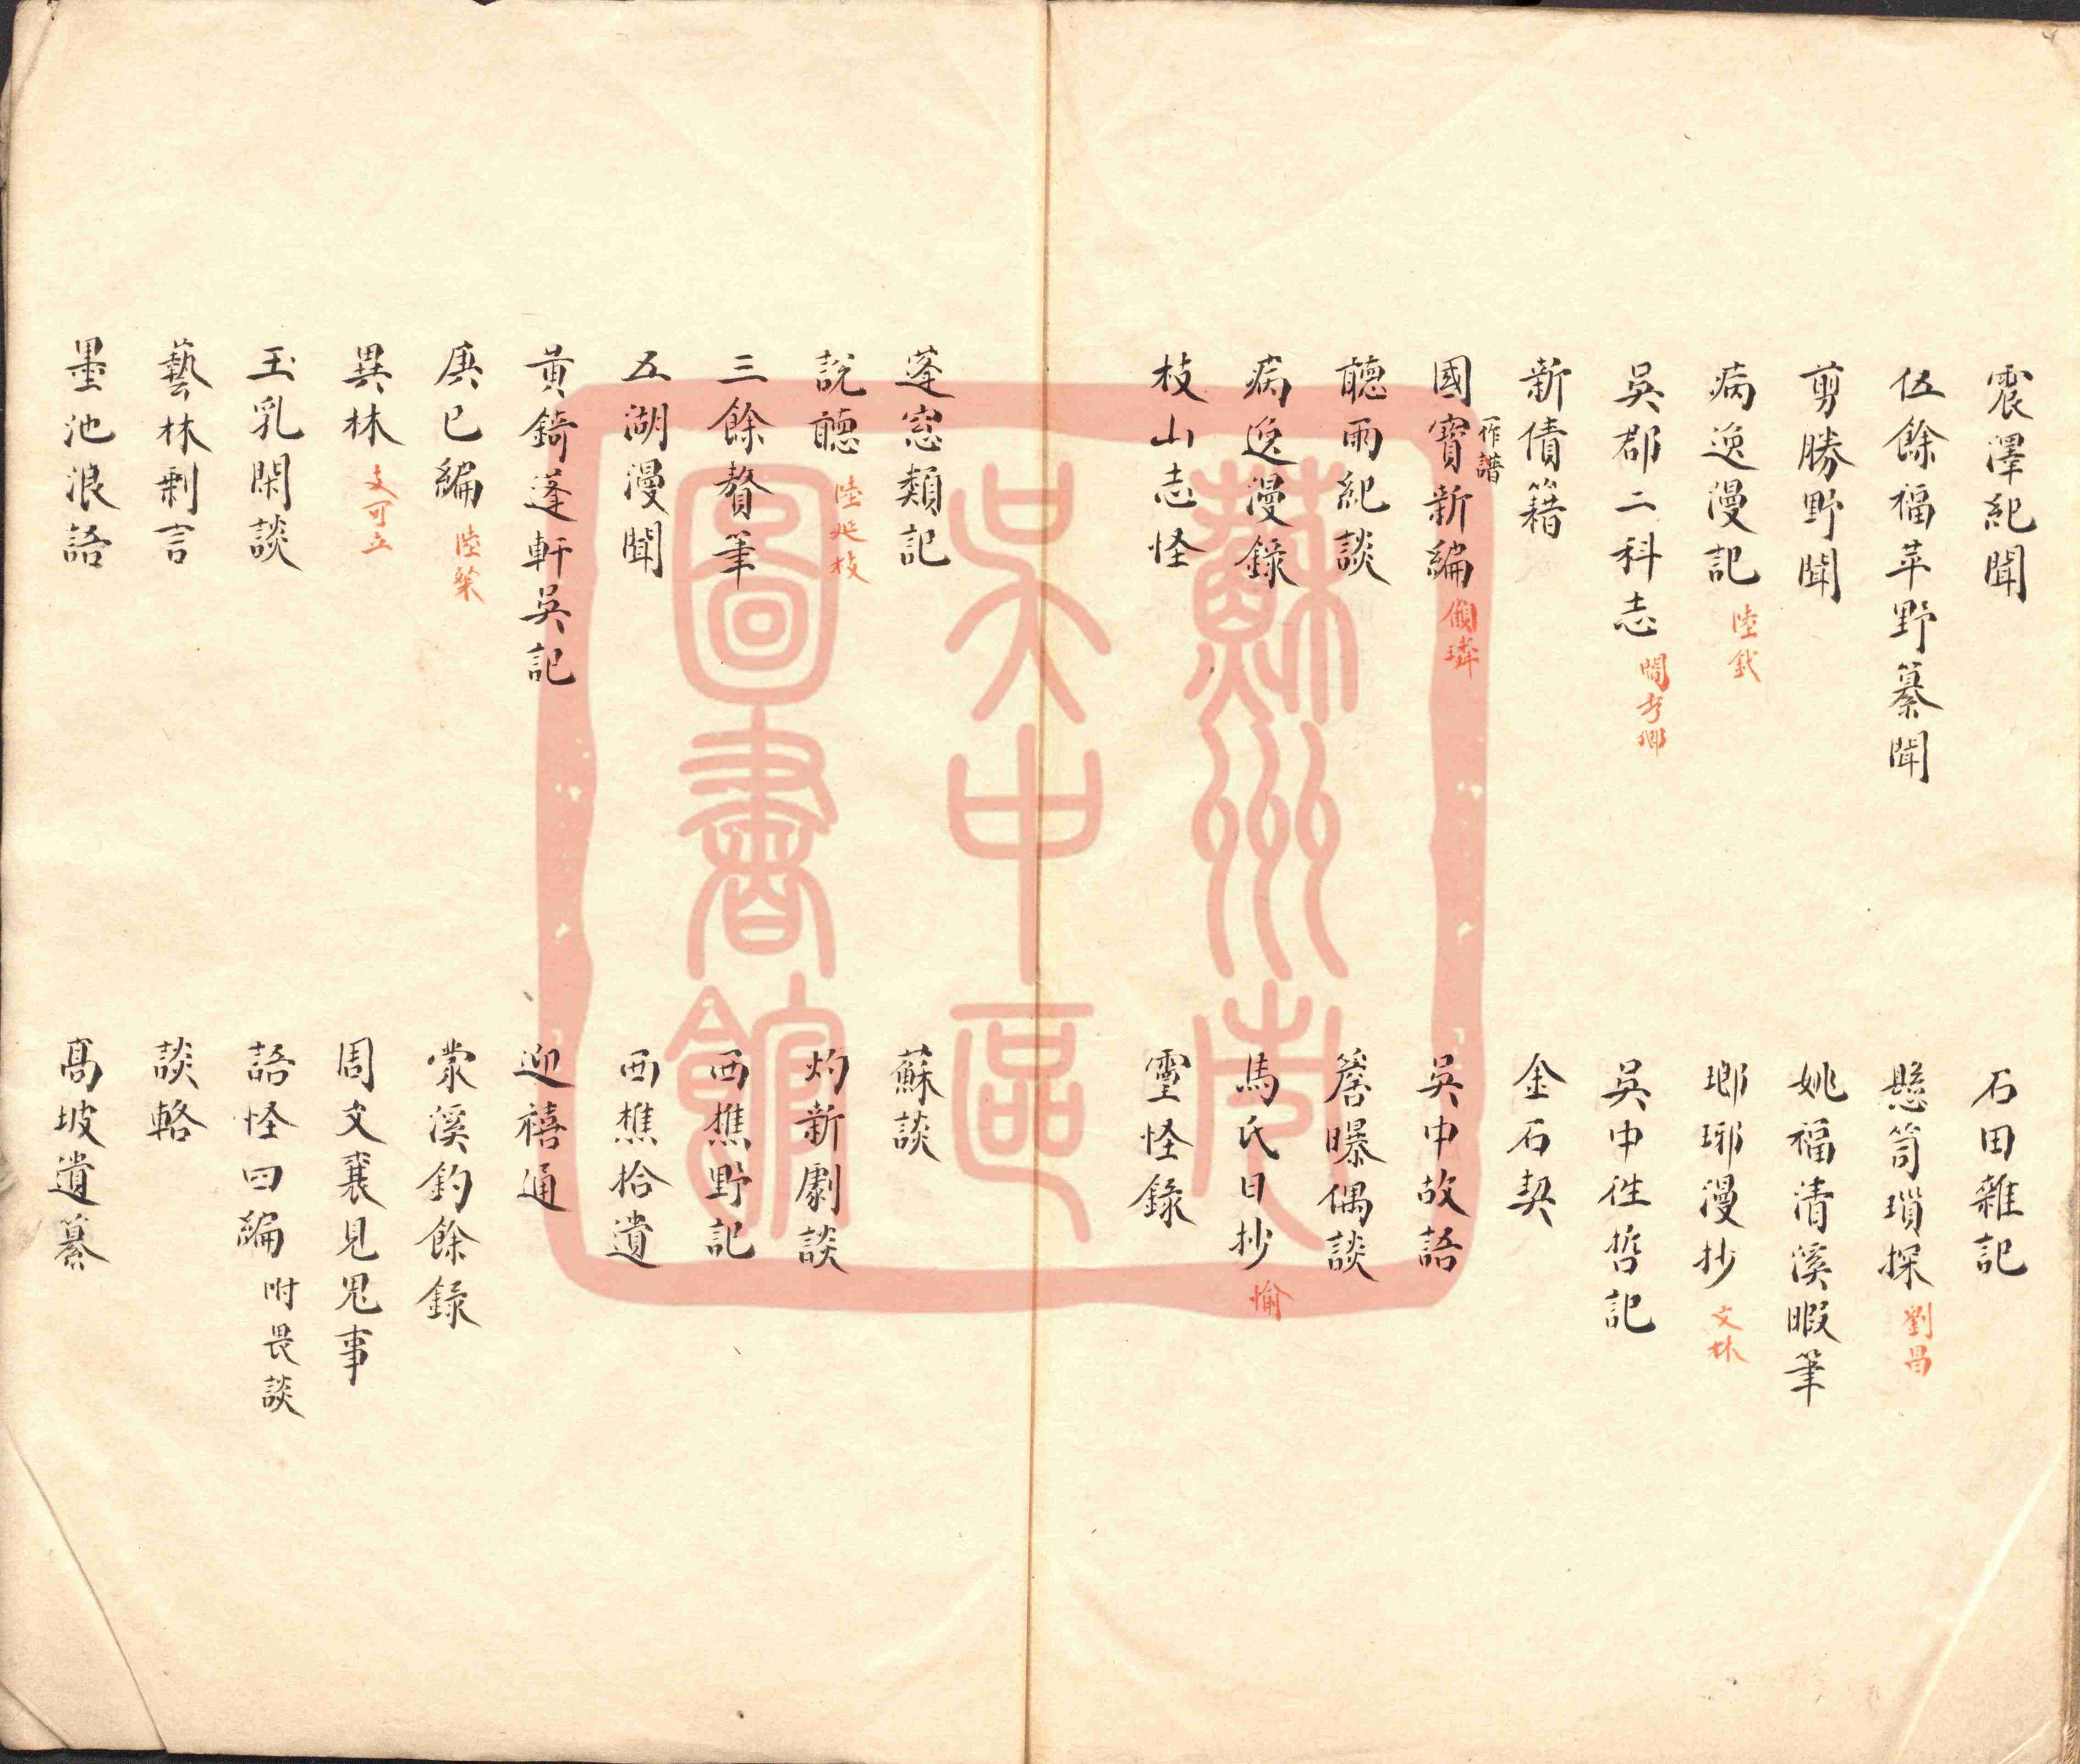 震澤紀聞
石田雜記
伍餘福苹野纂聞
懸笥瑣探 劉昌
剪勝野聞
姚福清溪暇筆
病逸漫記 陸釴
瑯琊漫抄 文林
吳郡二科志 閻秀卿
吳中徃哲記
新債籍
作譜
金石契
國寶新編 顧璘
吳中故語
聽雨紀談
簷曝偶談
病逸漫錄
馬氏日抄 愉
枝山志怪
靈怪錄
蓬窓類記
蘇談
說聽 陸延枝
灼新劇談
三餘贅筆
西樵野記
五湖漫聞
西樵拾遺
黃錡蓬軒吳記
迎禧通
庚巳編 陸粲
蒙溪釣餘録
異林 支可立
周文襄見鬼事
玉乳閑談
語怪四編 附畏談
藝林剩言
談輅
墨池浪語
高坡遺纂
蘇州市
吳中區
圖書館